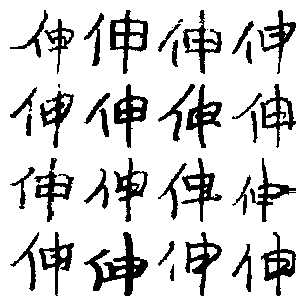 伸伸伸伸
伸伸伸伸
伸伸伸伸
伸伸伸伸